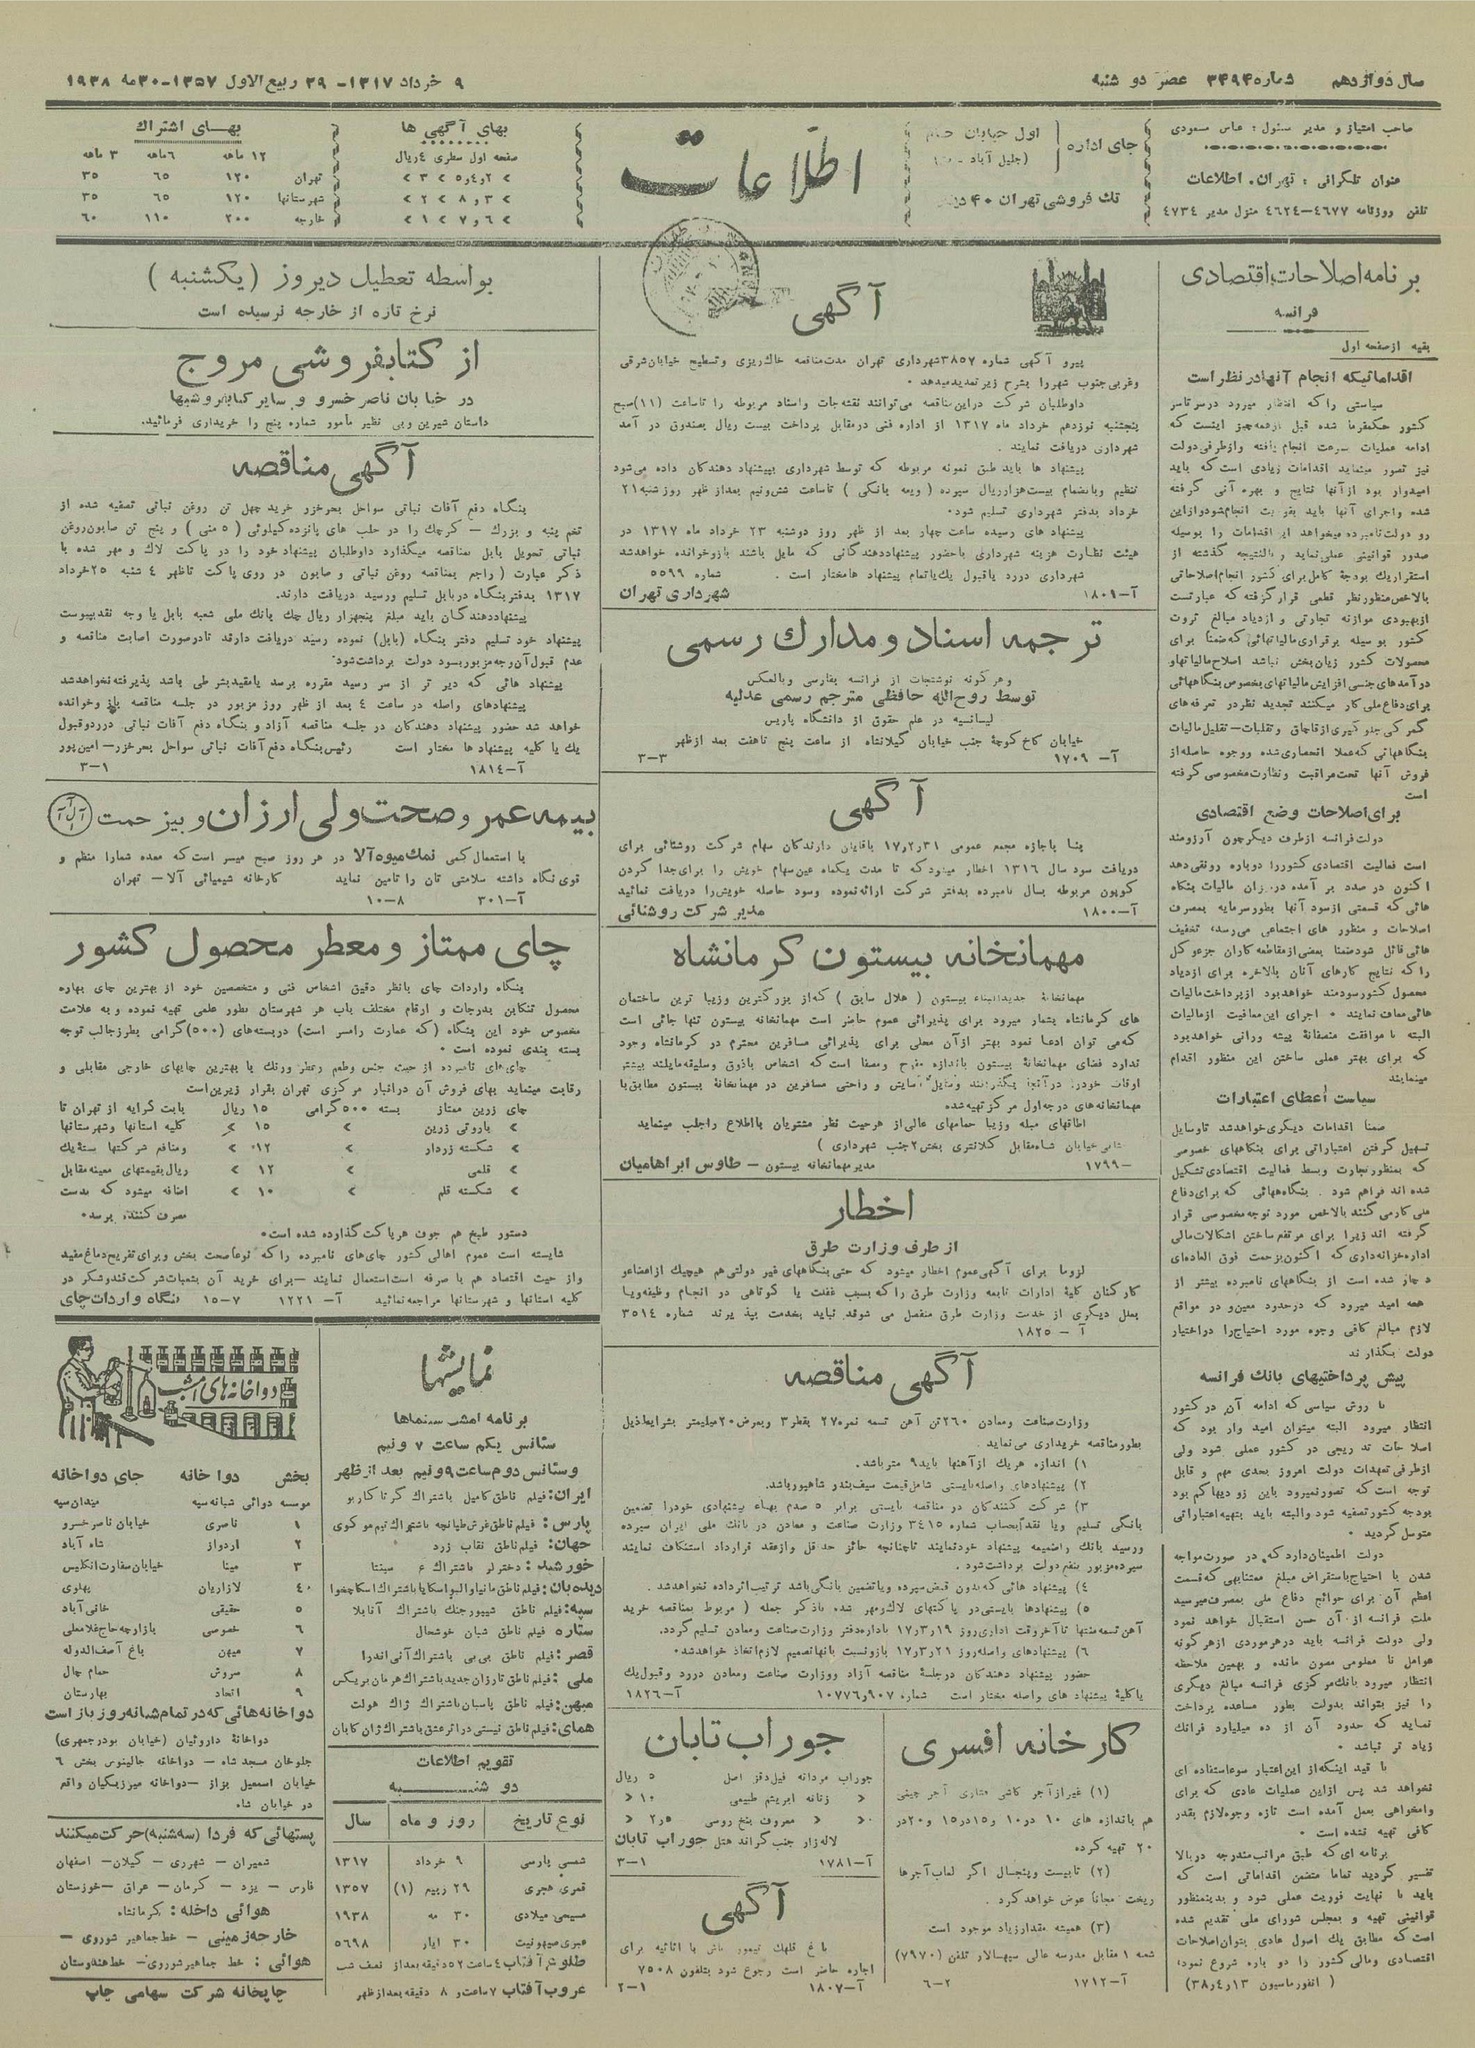 سال دوازدهم شماره ۳۴۹۴ عصر دو شنبه
۹ خرداد ۱۳۱۷- ۲۹ ربیع الاول ۱۳۵۷-۳۰ مه ۱۹۳۸
صاحب امتیاز و مدیر مسئول: عباس مسعودی
عنوان تلگرافی: تهران. اطلاعات
تلفن روزنامه ۴۶۷۷-۴۶۲۴ منزل مدیر ۴۷۳۴
جای اداره
اول خیابان
(جلیل آباد
تک فروشی تهران ۴۰
اطلاعات
بهای آگهی ها
صفحه اول سطری ۴ ریال
» ۲و۴و۵ » ۳ »
» ۳ و ۸ » ۲ »
» ۶ و ۷ » ۱ »
بهای اشتراک
۱۲ ماهه ۶ماهه ۳ ماهه
تهران ۱۲۰ ۶۵ ۳۵
شهرستانها ۱۲۰ ۶۵ ۳۵
خارجه ۲۰۰ ۱۱۰ ۶۰
برنامه اصلاحات اقتصادی
فرانسه
بقیه از صفحه اول
اقداماتیکه انجام آنها در نظر است
سیاستی را که انتظار میرود در سرتاسر
کشور حکمفرما شده قبل از همه چیز اینست که
ادامه عملیات سرعت انجام یافته و از طرفی دولت
نیز تصور مینماید اقدامات زیادی است که باید
امیدوار بود از آنها نتایج و بهره آنی گرفته
شده و اجرای آنها باید بفوریت انجام شود و از این
رو دولت نامبرده میخواهد این اقدامات را بوسیله
صدور قوانینی عملی نماید و بالنتیجه گذشته از
استقرار یک بودجه کامل برای کشور انجام اصلاحاتی
بالاخص منظور نظر قطعی قرار گرفته که عبارتست
از بهبودی موازنه تجارتی و ازدیاد مبالغ ثروت
کشور بوسیله برقراری مالیاتهائی که ضمنا برای
محصولات کشور زیان بخش نباشد اصلاح مالیاتها و
درآمدهای جنسی افزایش مالیاتهای بخصوص بنگاههائی
برای دفاع ملی کار میکنند تجدید نظر در تعرفه های
گمرکی جلوگیری از قاچاق و تقلبات - تقلیل مالیات
بنگاههائی که عملا انحصاری شده و وجوه حاصله از
فروش آنها تحت مراقبت و نظارت مخصوصی گرفته
است
برای اصلاحات وضع اقتصادی
دولت فرانسه از طرف دیگر چون آرزومند
است فعالیت اقتصادی کشور را دوباره رونقی دهد
اکنون در صدد بر آمده در میزان مالیات بنگاه
هائی که قسمتی از سود آنها بطور سرمایه بمصرف
اصلاحات و منظور های اجتماعی می رسد، تخفیف
هائی قائل شود ضمنا بعضی از مقاطعه کاران جزء و کل
را که نتایج کارهای آنان بالاخره برای ازدیاد
محصول کشور سودمند خواهد بود از پرداخت مالیات
هائی معاف نمایند. اجرای این معافیت از مالیات
البته با موافقت منصفانهٔ پیشه ورانی خواهد بود
که برای بهتر عملی ساختن این منظور اقدام
مینمایند
سیاست اعطای اعتبارات
ضمنا اقدامات دیگری خواهد شد تا وسایل
تسهیل گرفتن اعتباراتی برای بنگاههای خصوصی
که بمنظور تجارت و بسط فعالیت اقتصادی تشکیل
شده اند فراهم شود. بنگاههائی که برای دفاع
ملی کار می کنند بالاخص مورد توجه مخصوصی قرار
گرفته اند زیرا برای مرتفع ساختن اشکالات مالی
اداره خزانه داری که اکنون بزحمت فوق العاده ای
دچار شده است از بنگاههای نامبرده بیشتر از
همه امید میرود که در حدود معین و در مواقع
لازم مبالغ کافی وجوه مورد احتیاج را در اختیار
دولت بگذارند
پیش پرداختهای بانک فرانسه
با روش سیاسی که ادامه آن در کشور
انتظار میرود البته میتوان امیدوار بود که
اصلاحات تدریجی در کشور عملی شود ولی
از طرفی تعهدات دولت امروز بحدی مهم و قابل
توجه است که تصور نمیرود باین زودیها کم بود
بودجه کشور تصفیه شود و البته باید بتهیه اعتباراتی
متوسل گردید.
دولت اطمینان دارد که در صورت مواجه
شدن با احتیاج باستقراض مبلغ معتنابهی که قسمت
اعظم آن برای حوائج دفاع ملی بمصرف میرسید
ملت فرانسه از آن حسن استقبال خواهد نمود
ولی دولت فرانسه باید در هر موردی از هر گونه
عوامل نا معلومی مصون مانده و بهمین ملاحظه
انتظار میرود بانک مرکزی فرانسه مبالغ دیگری
را نیز بتواند بدولت بطور مساعده پرداخت
نماید که حدود آن از ده میلیارد فرانک
زیاد تر نباشد.
با قید اینکه از این اعتبار سوء استفاده ای
نخواهد شد پس از این عملیات عادی که برای
وامخواهی بعمل آمده است تازه وجوه لازم بقدر
کافی تهیه نشده است.
برنامه ای که طبق مراتب مندرجه در بالا
تفسیر گردید تماما متضمن اقداماتی است که
باید با نهایت فوریت عملی شود و بدینمنظور
قوانینی تهیه و بمجلس شورای ملی تقدیم شده
است که مطابق یک اصول عادی بتوان اصلاحات
اقتصادی و مالی کشور را دوباره شروع نمود؛
(انفورماسیون ۱۳ر۴ر۳۸)
آگهی
پیرو آگهی شماره ۳۸۵۷ شهرداری تهران مدت مناقصه خاک ریزی و تسطیح خیابان شرقی
و غربی جنوب شهر را بشرح زیر تمدید میدهد.
داوطلبان شرکت در این مناقصه می توانند نقشه جات و اسناد مربوطه را تا ساعت (۱۱) صبح
پنجشنبه نوزدهم خرداد ماه ۱۳۱۷ از اداره فنی در مقابل پرداخت بیست ریال بصندوق در آمد
شهرداری دریافت نمایند.
پیشنهاد ها باید طبق نمونه مربوطه که توسط شهرداری بپیشنهاد دهندگان داده می شود
تنظیم و بانضمام بیست هزار ریال سپرده (وبیمه بانکی) تا ساعت شش و نیم بعد از ظهر روز شنبه ۲۱
خرداد بدفتر شهرداری تسلیم شود.
پیشنهاد های رسیده ساعت چهار بعد از ظهر روز دوشنبه ۲۳ خرداد ماه ۱۳۱۷ در
هیئت نظارت هزینه شهرداری باحضور پیشنهاد دهندگانی که مایل باشند باز و خوانده خواهد شد
شهرداری در رد یا قبول یک یا تمام پیشنهاد ها مختار است. شماره ۵۵۹۹
آ-۱۸۰۹ شهرداری تهران
ترجمه اسناد و مدارک رسمی
و هر گونه نوشتجات از فرانسه بفارسی و بالعکس
توسط روح الله حافظی مترجم رسمی عدلیه
لیسانسیه در علم حقوق از دانشگاه پاریس
خیابان کاخ کوچهٔ جنب خیابان گیلانشاه از ساعت پنج تا هفت بعد از ظهر
آ- ۱۷۰۹ ۳-۳
آگهی
بنا باجازه مجمع عمومی ۱۷٫۲٫۳۱ باقایان دارندگان سهام شرکت روشنائی برای
دریافت سود سال ۱۳۱۶ اخطار میشود که تا مدت یکماه عین سهام خویش را برای جدا کردن
کوپون مربوطه بسال نامبرده بدفتر شرکت ارائه نموده و سود حاصله خویش را دریافت نمائید
آ-۱۸۰۰ مدیر شرکت روشنائی
مهمانخانه بیستون کرمانشاه
مهمانخانهٔ جدید البناء بیستون (هلال سابق) که از بزرگترین و زیبا ترین ساختمان
های کرمانشاه بشمار میرود برای پذیرائی عموم حاضر است مهمانخانه بیستون تنها جائی است
که می توان ادعا نمود بهتر از آن محلی برای پذیرائی مسافرین محترم در کرمانشاه وجود
ندارد فضای مهمانخانهٔ بیستون باندازه مفرح و مصفا است که اشخاص باذوق و سلیقه مایلند بیشتر
اوقات خود را در آنجا بگذرانند وسایل آسایش و راحتی مسافرین در مهمانخانهٔ بیستون مطابق با
مهمانخانه های درجه اول مرکز تهیه شده
اطاقهای مبله و زیبا حمامهای عالی از هر حیث نظر مشتریان با اطلاع را جلب مینماید
خیابان شاه مقابل کلانتری بخش ۲ جنب شهرداری)
-۱۷۹۹ مدیر مهمانخانه بیستون - طاوس ابراهامیان
اخطار
از طرف وزارت طرق
لزوما برای آگهی عموم اخطار میشود که حتی بنگاههای غیر دولتی هم هیچیک از اعضاء و
کارکنان کلیهٔ ادارات تابعه وزارت طرق را که بسبب غفلت یا کوتاهی در انجام وظیفه و یا
بعلل دیگری از خدمت وزارت طرق منفصل می شوند نباید بخدمت بپذیرند شماره ۳۵۱۴
آ - ۱۸۲۵
آگهی مناقصه
وزارت صناعت و معادن ۲۶۰ تن آهن تسمه نمره ۲۷ بقطر ۳ و بعرض ۲۰ میلیمتر بشرایط ذیل
بطور مناقصه خریداری می نماید.
۱) اندازه هر یک از آهنها باید ۹ متر باشد.
۲) پیشنهادهای واصله بایستی شامل قیمت سیف بندر شاهپور باشد.
۳) شرکت کنندگان در مناقصه بایستی برابر ۵ صدم بهاء پیشنهادی خود را تضمین
بانکی تسلیم و یا نقداً بحساب شماره ۳۴۱۵ وزارت صناعت و معادن در بانک ملی ایران سپرده
و رسید بانک را ضمیمه پیشنهاد خود نمایند تا چنانچه حائز حد اقل و از عقد قرارداد استنکاف نمایند
سپرده مزبور بنفع دولت برداشت شود.
۴) پیشنهاد هائی که بدون قبض سپرده و یا تضمین بانکی باشد ترتیب اثر داده نخواهد شد.
۵) پیشنهادها بایستی در پاکتهای لاک و مهر شده با ذکر جمله (مربوط بمناقصه خرید
آهن تسمه) منتها تا آخر وقت اداری روز ۱۷٫۳٫۱۹ باداره دفتر وزارت صناعت و معادن تسلیم گردد.
۶) پیشنهادهای واصله روز ۱۷٫۳٫۲۱ باز و نسبت بآنها تصمیم لازم اتخاذ خواهد شد.
حضور پیشنهاد دهندگان در جلسهٔ مناقصه آزاد و وزارت صناعت و معادن در رد و قبول یک
یا کلیهٔ پیشنهاد های واصله مختار است شماره ۱۰۷۷۶٫۹۰۷ آ-۱۸۲۶
کارخانه افسری
(۱) غیر از آجر کاشی آجر چینی
هم باندازه های ۱۰ در ۱۰ و ۱۵ در ۱۵ و ۲۰ در
۲۰ تهیه کرده
(۲) تا بیست و پنجسال اگر لعاب آجرها
ریخت مجاناً عوض خواهد کرد.
(۳) همیشه مقدار زیاد موجود است
شعبه ۱ مقابل مدرسه عالی سپهسالار تلفن (۷۹۷۰)
آ-۱۷۱۲ ۶-۲
جوراب تابان
جوراب مردانه فیل دقز اصل ۵ ریال
» زنانه ابریشم طبیعی ۱۰ »
» معروف پنج روسی ۲٫۵ »
لاله زار جنب گراند هتل جوراب تابان
آ-۱۷۸۱ ۳-۱
آگهی
باغ قلهک تیمور تاش با اثاثیه برای
اجاره حاضر است رجوع شود بتلفون ۷۵۰۸
آ-۱۸۰۷ ۲-۱
بواسطه تعطیل دیروز (یکشنبه)
نرخ تازه از خارجه نرسیده است
از کتابفروشی مروج
در خیابان ناصر خسرو و سایر کتابفروشیها
داستان شیرین و بی نظیر مأمور شماره پنج را خریداری فرمائید.
آگهی مناقصه
بنگاه دفع آفات نباتی سواحل بحر خزر خرید چهل تن روغن نباتی تصفیه شده از
تخم پنبه و بزرک - کرچک را در حلب های پانزده کیلوئی (۵ منی) و پنج تن صابون روغن
نباتی تحویل بابل بمناقصه میگذارد داوطلبان پیشنهاد خود را در پاکت لاک و مهر شده با
ذکر عبارت (راجع بمناقصه روغن نباتی و صابون در روی پاکت تا ظهر ۴ شنبه ۲۵ خرداد
۱۳۱۷ بدفتر بنگاه در بابل تسلیم و رسید دریافت دارند.
پیشنهاد دهندگان باید مبلغ پنجهزار ریال چک بانک ملی شعبه بابل یا وجه نقد بپیوست
پیشنهاد خود تسلیم دفتر بنگاه (بابل) نموده رسید دریافت دارند تا در صورت اصابت مناقصه و
عدم قبول آن وجه مزبور بسود دولت برداشت شود.
پیشنهاد هائی که دیر تر از سر رسید مقرره برسد یا مقید بشرطی باشد پذیرفته نخواهد شد
پیشنهادهای واصله در ساعت ۴ بعد از ظهر روز مزبور در جلسه مناقصه باز و خوانده
خواهد شد حضور پیشنهاد دهندگان در جلسه مناقصه آزاد و بنگاه دفع آفات نباتی در رد و قبول
یک یا کلیه پیشنهاد ها مختار است رئیس بنگاه دفع آفات نباتی سواحل بحر خزر - امین پور
آ-۱۸۱۴ ۳-۱
بیمه عمر و صحت ولی ارزان و بیزحمت
با استعمال کمی نمک میوه آلا در هر روز صبح میسر است که معده شما را منظم و
قوی نگاه داشته سلامتی تان را تامین نماید کارخانه شیمیائی آلا - تهران
آ-۳۰۱ ۱۰-۸
چای ممتاز و معطر محصول کشور
بنگاه واردات چای بانظر دقیق اشخاص فنی و متخصصین خود از بهترین چای بهاره
محصول تنکابن بدرجات و ارقام مختلف باب هر شهرستان بطور علمی تهیه نموده و به علامت
مخصوص خود این بنگاه (که عمارت رامسر است) در بسته های (۵۰۰) گرامی بطرز جالب توجه
بسته بندی نموده است.
چای های نامبرده از حیث جنس و طعم و عطر و رنگ با بهترین چایهای خارجی مقابلی و
رقابت مینماید بهای فروش آن در انبار مرکزی تهران بقرار زیرین است
چای زرین ممتاز بسته ۵۰۰ گرامی ۱۵ ریال بابت کرایه از تهران تا
» باروتی زرین » ۱۵ » کلیه استانها و شهرستانها
» شکسته زردار » ۱۲ » و منافع شرکتها بسته یک
» قلمی » ۱۲ » ریال بقیمتهای معینه مقابل
» شکسته قلم » ۱۰ » اضافه میشود که بدست
مصرف کننده برسد.
دستور طبخ هم جوف هر پاکت گذارده شده است.
شایسته است عموم اهالی کشور چای های نامبرده را که نوعا صحت بخش و برای تفریح دماغ مفید
و از حیث اقتصاد هم با صرفه است استعمال نمایند - برای خرید آن بشعبات شرکت قند و شکر در
کلیه استانها و شهرستانها مراجعه نمائید آ- ۱۲۲۱ ۱۵-۷ بنگاه واردات چای
نمایشها
برنامه امشب سینماها
سئانس یکم ساعت ۷ ونیم
و سئانس دوم ساعت ۹ ونیم بعد از ظهر
ایران: فیلم ناطق کامیل باشتراک گرتا گاربو
پارس: فیلم ناطق غرش طپانچه باشتراک تیم مو کوی
جهان: فیلم ناطق نقاب زرد
خورشید: دختر لر باشتراک ع سپنتا
دیده بان: فیلم ناطق مانیا و البواسکایا باشتراک اسکاچخوا
سپه: فیلم ناطق شیپور جنگ باشتراک آنابلا
ستاره فیلم ناطق شبان خوشحال
قصر: فیلم ناطق بی بی باشتراک آنی اندرا
ملی: فیلم ناطق تارزان جدید باشتراک هرمان بریکس
میهن: فیلم ناطق پاسبان باشتراک ژاک هولت
همای: فیلم ناطق نیستی در اثر عشق باشتراک ژان کابان
تقویم اطلاعات
دو شنبه
نوع تاریخ روز و ماه سال
شمسی پارسی ۹ خرداد ۱۳۱۷
قمری هجری ۲۹ ربیع (۱) ۱۳۵۷
مسیحی میلادی ۳۰ مه ۱۹۳۸
عبری صیهونیت ۳۰ ایار ۵۶۹۸
طلوع آفتاب ۴ ساعت ۵۲ دقیقه بعد از نصف شب
غروب آفتاب ۷ ساعت و ۸ دقیقه بعد از ظهر
دواخانه های امشب
بخش دوا خانه جای دواخانه
موسسه دوائی شبانه سپه میدان سپه
۱ ناصری خیابان ناصر خسرو
۲ اردواز شاه آباد
۳ مینا خیابان سفارت انگلیس
۴ لازاریان پهلوی
۵ حقیقی خانی آباد
۶ خصوصی بازارچه حاج غلامعلی
۷ میهن باغ آصف الدوله
۸ سروش حمام چال
۹ اتحاد بهارستان
دواخانه هائی که در تمام شبانه روز باز است
دواخانهٔ داروئیان (خیابان بوذرجمهری)
جلوخان مسجد شاه - دواخانه جالینوس بخش ۶
خیابان اسمعیل بزاز - دواخانه میرزیگیان واقع
در خیابان شاه
پستهائی که فردا (سه شنبه) حرکت میکنند
شمیران - شهرری - گیلان - اصفهان
فارس - یزد - کرمان - عراق - خوزستان
هوائی داخله: کرمانشاه
خارجه زمینی - خط جماهیر شوروی -
هوائی: خط جماهیر شوروی - خط هندوستان
چاپخانه شرکت سهامی چاپ